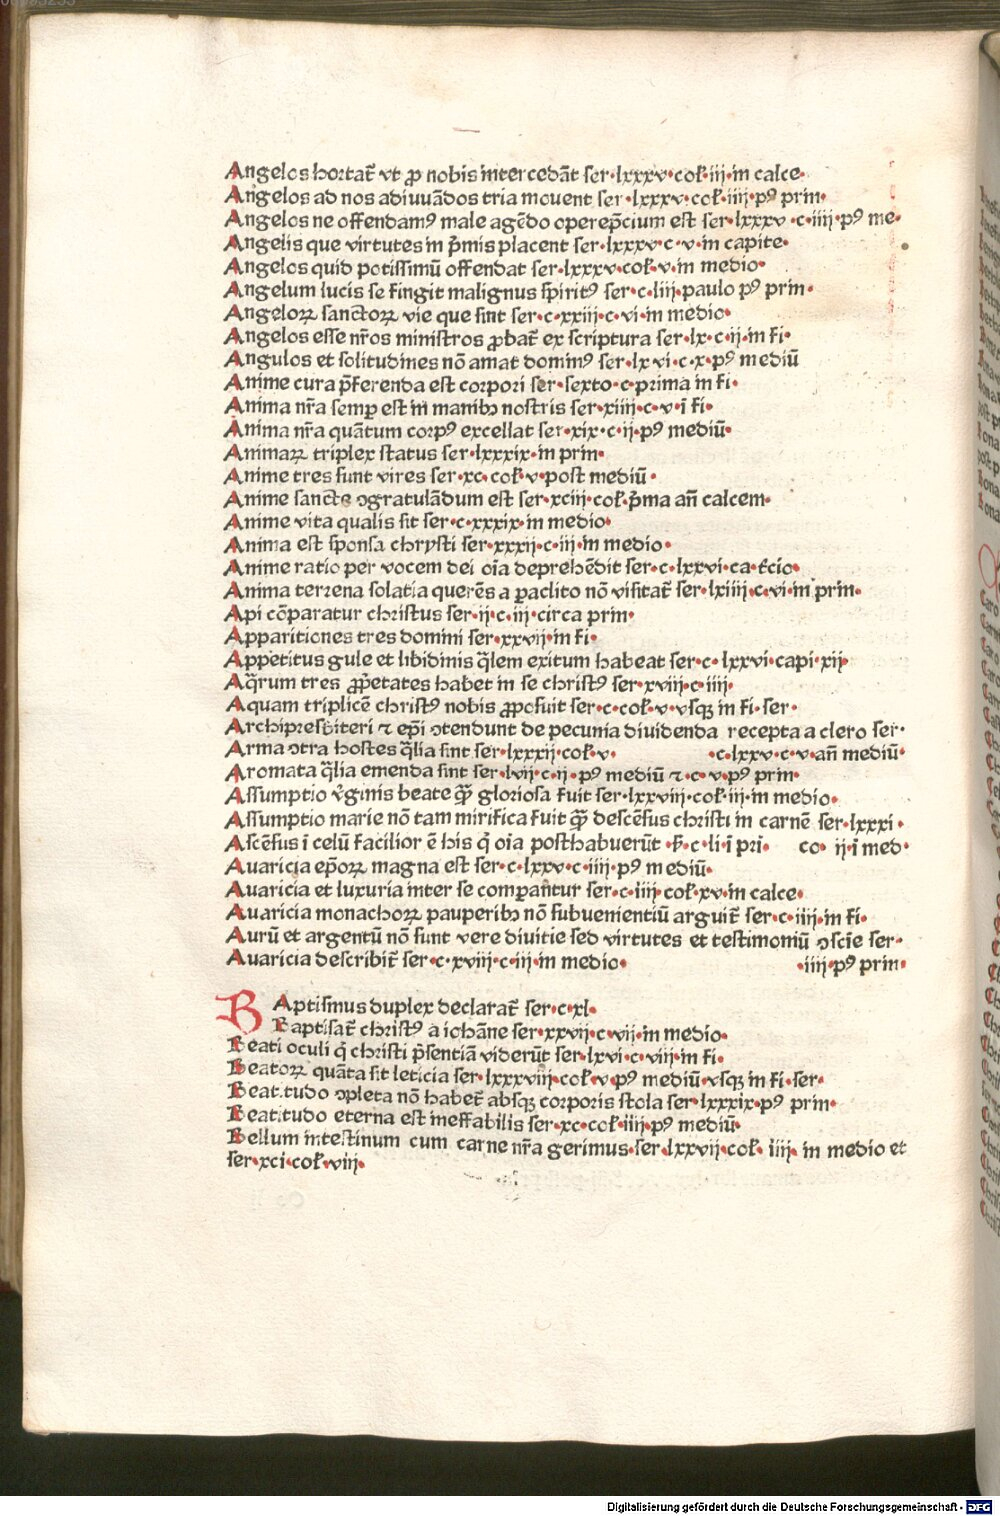 Angelos hortat̄ vt ꝓ nobis intercedāt ser·lxxxv·col̄·iij·in calce·
Angelos ad nos adiuuādos tria mouent ser·lxxxv·col̄·iiij·pꝰ prin·
Angelos ne offendamꝰ male agēdo operep̄cium est ser·lxxxv·c·iiij·pꝰ me·
Angelis que virtutes in p̄mis placent ser·lxxxv·c·v·in capite·
Angelos quid potissimū offendat ser·lxxxv·col̄·v·in medio·
Angelum lucis se fingit malignus spiritꝰ ser·c·liij·paulo pꝰ prin·
Angeloꝝ sanctoꝝ vie que sint ser·c·xxiij·c·vi·in medio·
Angelos esse nr̄os ministros ꝓbat̄ ex scriptura ser·lx·c·ij·in fi·
Angulos et solitudines nō amat dominꝰ ser·lxvi·c·x·pꝰ mediū
Anime cura p̄ferenda est corpori ser·sexto·c·prima in fi·
Anima nr̄a semꝑ est in manibꝫ nostris ser·xiiij·c·v·ī fi·
Anima nr̄a quātum corpꝰ excellat ser·xix·c·ij·pꝰ mediū·
Animaꝝ triplex status ser·lxxxix·in prin·
Anime tres sunt vires ser·xc·col̄·v·post mediū·
Anime sancte ꝯgratulādum est ser·xciij·col̄·p̄ma an̄ calcem·
Anime vita qualis sit ser·c·xxxix·in medio·
Anima est sponsa chrysti ser·xxxij·c·iij·in medio·
Anime ratio per vocem dei oīa deprehēdit ser·c·lxxvi·ca·t̄cio·
Anima terrena solatia querēs a paclito nō visitat̄ ser·lxiiij·c·vi·in prin·
Api cōparatur christus ser·ij·c·iij·circa prin·
Apparitiones tres domini ser·xxvij·in fi·
Appetitus gule et libidinis q̄lem exitum habeat ser·c·lxxvi·capi·xij·
Aq̄rum tres ꝓp̄etates habet in se christꝰ ser·xviij·c·iiij·
Aquam triplicē christꝰ nobis ꝓposuit ser·c·col̄·v·vsqꝫ in fi·ser·
Archipresbiteri ⁊ ep̄i ꝯtendunt de pecunia diuidenda recepta a clero ser·
Arma ꝯtra hostes q̄lia sint ser·lxxxij·col̄·v· ·c·lxxv·c·v·an̄ mediū·
Aromata q̄lia emenda sint ser·lvij·c·ij·pꝰ mediū ⁊·c·v·pꝰ prin·
Assumptio v̄ginis beate q̄ꝫ gloriosa fuit ser·lxxviij·col̄·iij·in medio·
Assumptio marie nō tam mirifica fuit q̄ꝫ descēsus christi in carnē ser·lxxxi·
Ascēsus ī celū facilior ē his q̄ oīa posthabuerūt ·s̄·c·li·ī pri· co· ij·ī med·
Auaricia ep̄oꝝ magna est ser·c·lxxv·c·iiij·pꝰ mediū·
Auaricia et luxuria inter se comparantur ser·c·iiij·col̄·xv·in calce·
Auaricia monachoꝝ pauperibꝫ nō subuenientiū arguit̄ ser·c·iiij·in fi·
Aurū et argentū nō sunt vere diuitie sed virtutes et testimoniū ꝯscīe ser·
Auaricia describit̄ ser·c·xviij·c·iij·in medio· ·iiij·pꝰ prin·
BAptismus duplex declarat̄ ser·c·xl·
Baptisat̄ christꝰ a iohāne ser·xxvij·c·vij·in medio·
Beati oculi q̄ christi p̄sentiā viderūt ser·lxvi·c·viij·in fi·
Beatoꝝ quāta sit leticia ser·lxxxviij·col̄·v·pꝰ mediū vsqꝫ in fi·ser·
Beatitudo ꝯpleta nō habet̄ absqꝫ corporis stola ser·lxxxix·pꝰ prin·
Beatitudo eterna est ineffabilis ser·xc·col̄·iiij·pꝰ mediū·
Bellum intestinum cum carne nr̄a gerimus·ser·lxxvij·col̄· iiij· in medio et
ser·xci·col̄·viij·
Digitalisierung gefördert durch die Deutsche Forschungsgemeinschaft - DFG